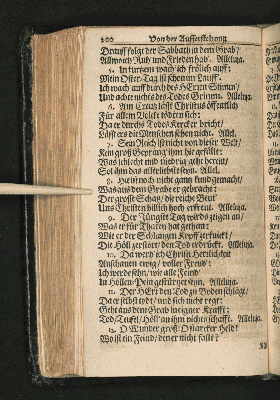 200 Von der Aufferstehung
Drauff folgt der Sabbath in dem Grab/
Allwo ich Ruh und Frieden hab'. Alleluja.
5. In kurtzem wach ich frölich auff:
Mein Oster-Tag ist schon im Lauff.
Ich wach auff durch des HErren Stimm/
Und achte nichts des Todes Grimm. Alleluja.
6. Am Creutz läst Christus öffentlich
Für allem Volcke tödten sich:
Da er durchs Todes Kercker bricht/
Läst ers die Menschen sehen nicht. Allel.
7. Sein Reich ist nicht von dieser Welt/
Kein groß Gepräng ihm hie gefällt:
Was schlecht und niedrig geht herein/
Sol ihm das allerliebste seyn. Allel.
8. Hie ist noch nicht gantz kund gemacht/
Was aus dem Grabe er gebracht:
Der grosse Schatz/ die reiche Beut/
Uns Christen billich hoch erfreut. Alleluja.
9. Der Jüngste Tag wirds zeigen an/
Was er für Thaten hat gethan:
Wie er der Schlangen Kopff zerknickt/
Die Höll zerstört/ den Tod erdrückt. Alleluja.
10. Da werd ich Christi Herrlichkeit
Anschauen ewig/ voller Freud:
Ich werde sehn/ wie alle Feind
In Höllen Pein gestürtzet seyn. Alleluja.
11. Der HErr den Tod zu Boden schlägt/
Da er selbst todt/ und sich nicht regt:
Geht aus dem Grab in eigner Krafft:
Tod/ Teuffel/ Höll an ihm nichts schafft. Alleluja.
12. O Wunder groß! O starcker Held!
Wo ist ein Feind/ den er nicht fällt?